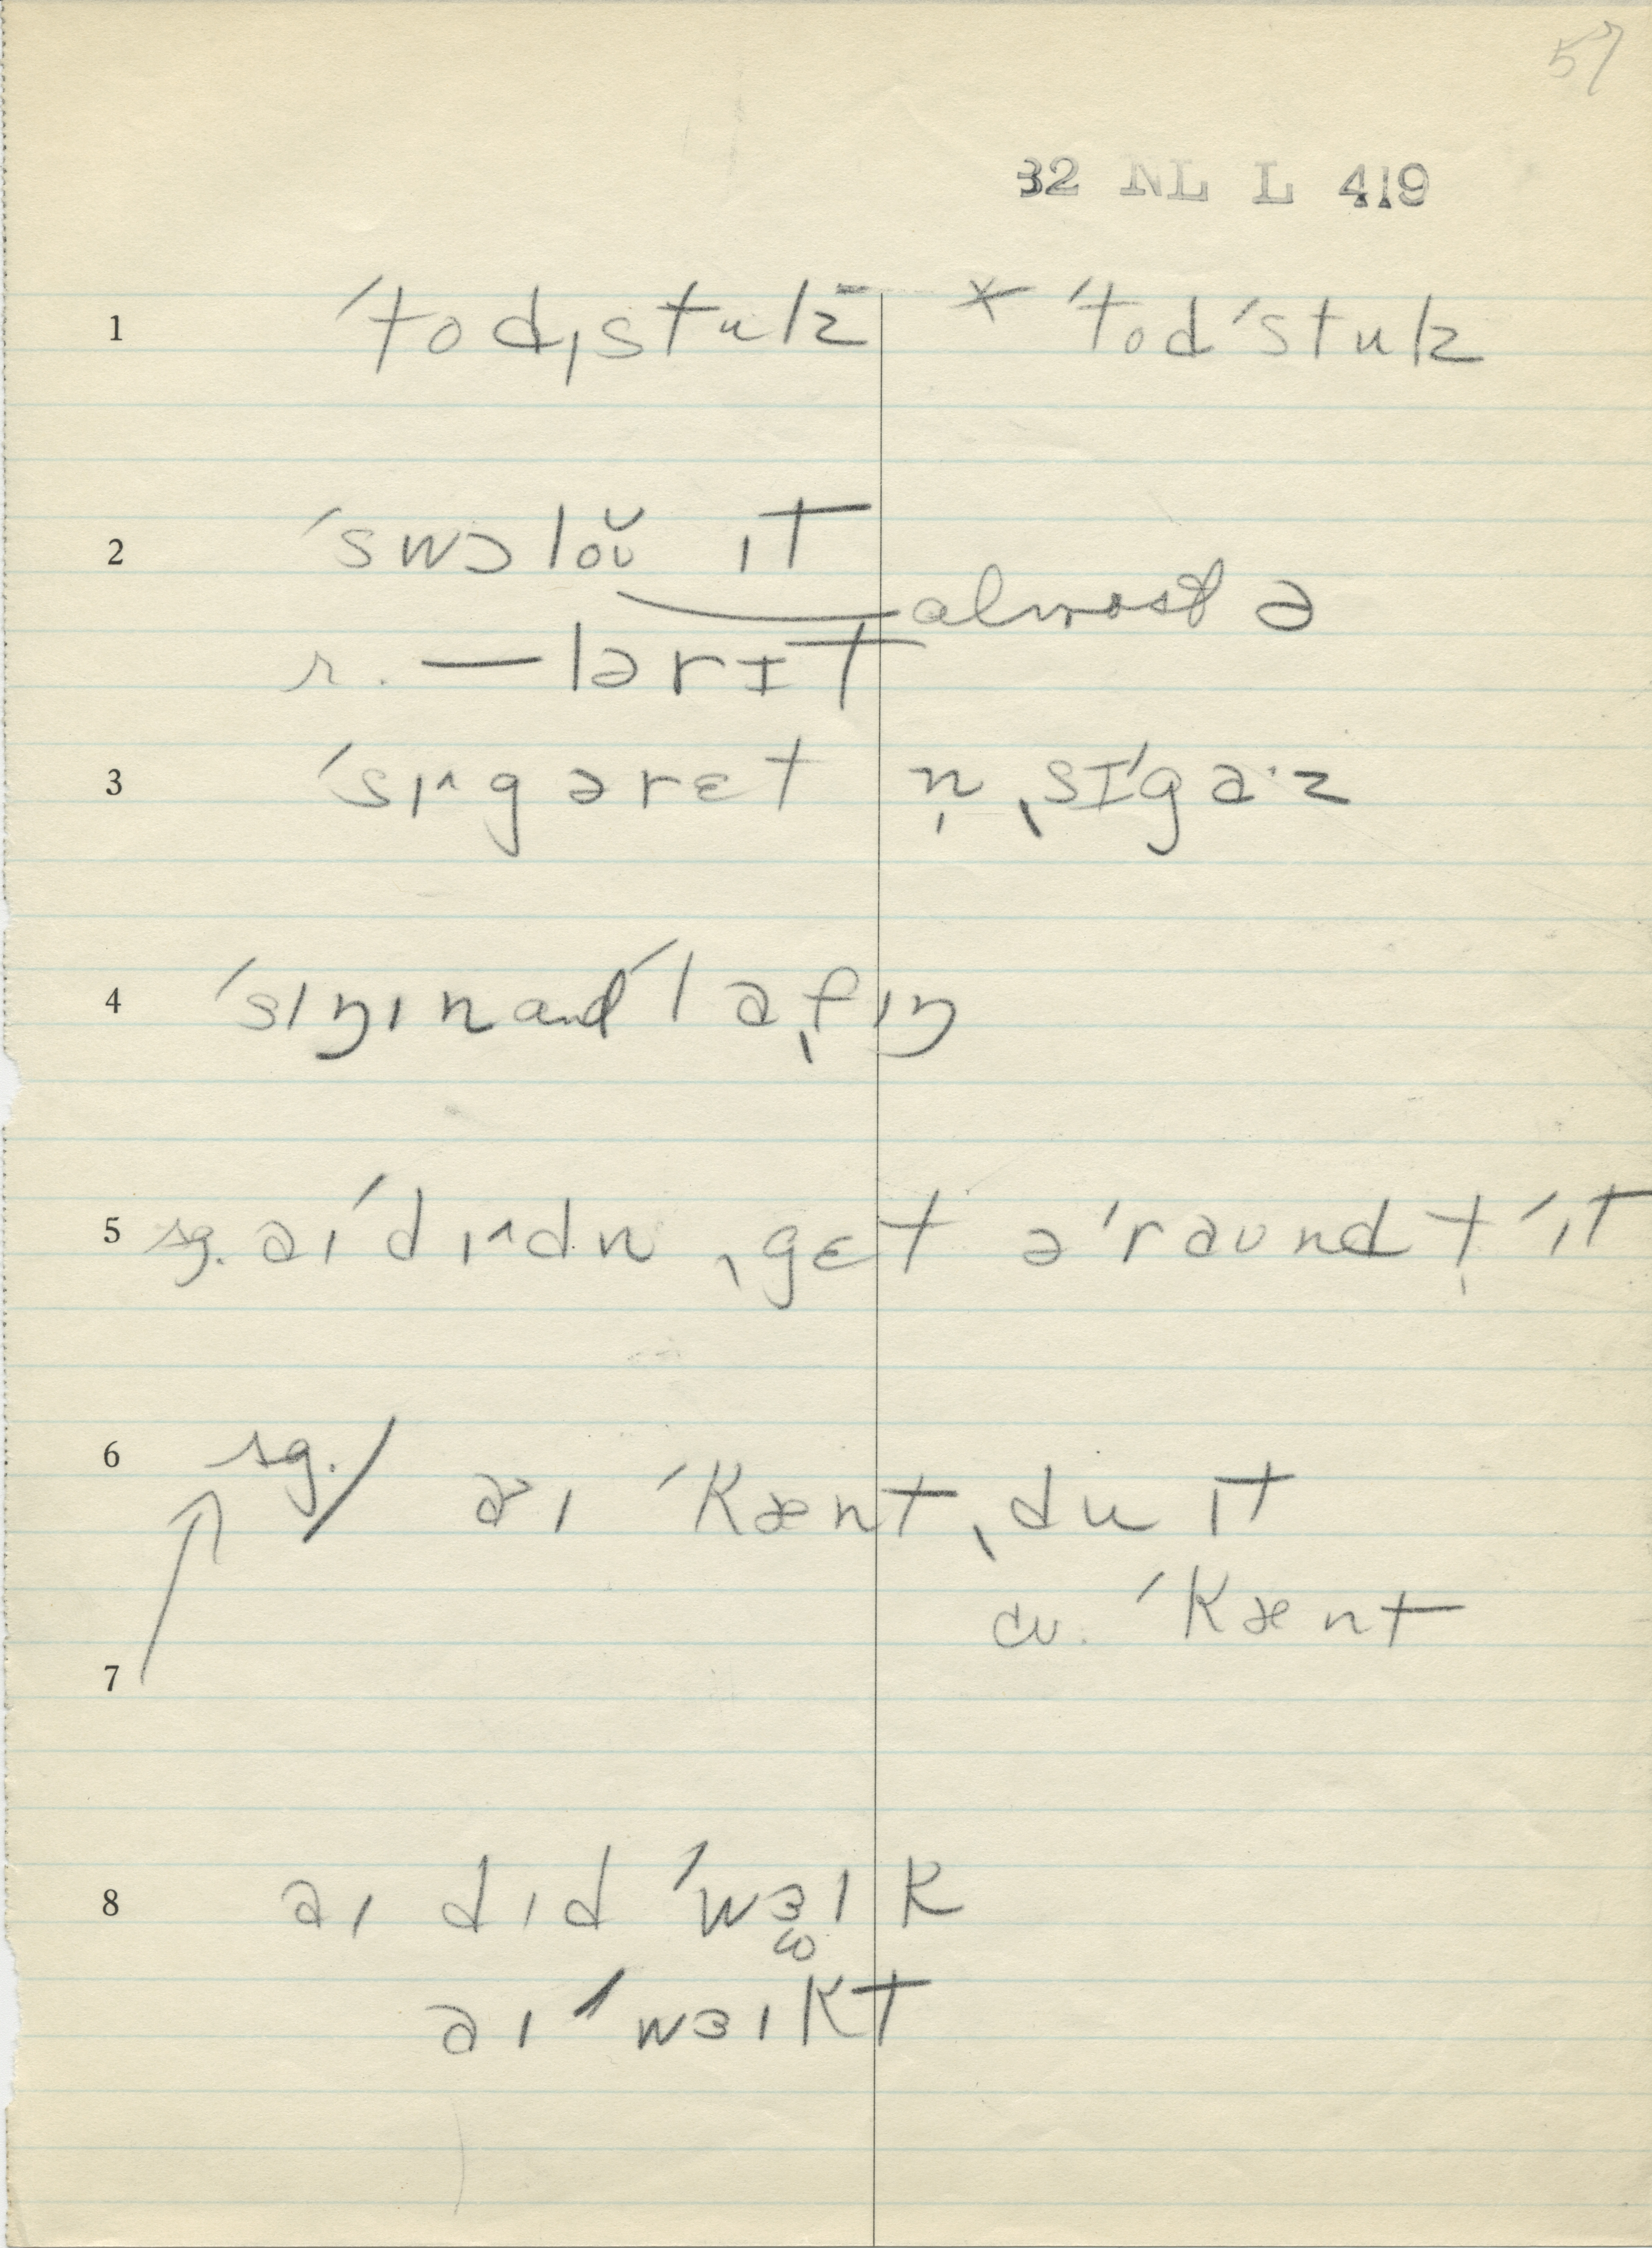 57
32 NL L 419
1 ˈtodˌstulz * ˈtodˈstulz
2 ˈswɔloʊ̆ ɪt
almost ə
r. — lərɪt
3 ˈsɪ^gərɛt n̩ ˌsɪˈga·z
4 ˈsɪŋɪn and ˈlafɪŋ
5 sg. aɪ ˈdɪ^dn ˌgɛt əˈraʊnd t̩ ˈɪt
6 sg./ aɪ ˈkænt ˌdu ɪt
cv. ˈkænt
7
8 aɪ dɪd ˈwɜɪk
aɪ ˈwɜɪkt